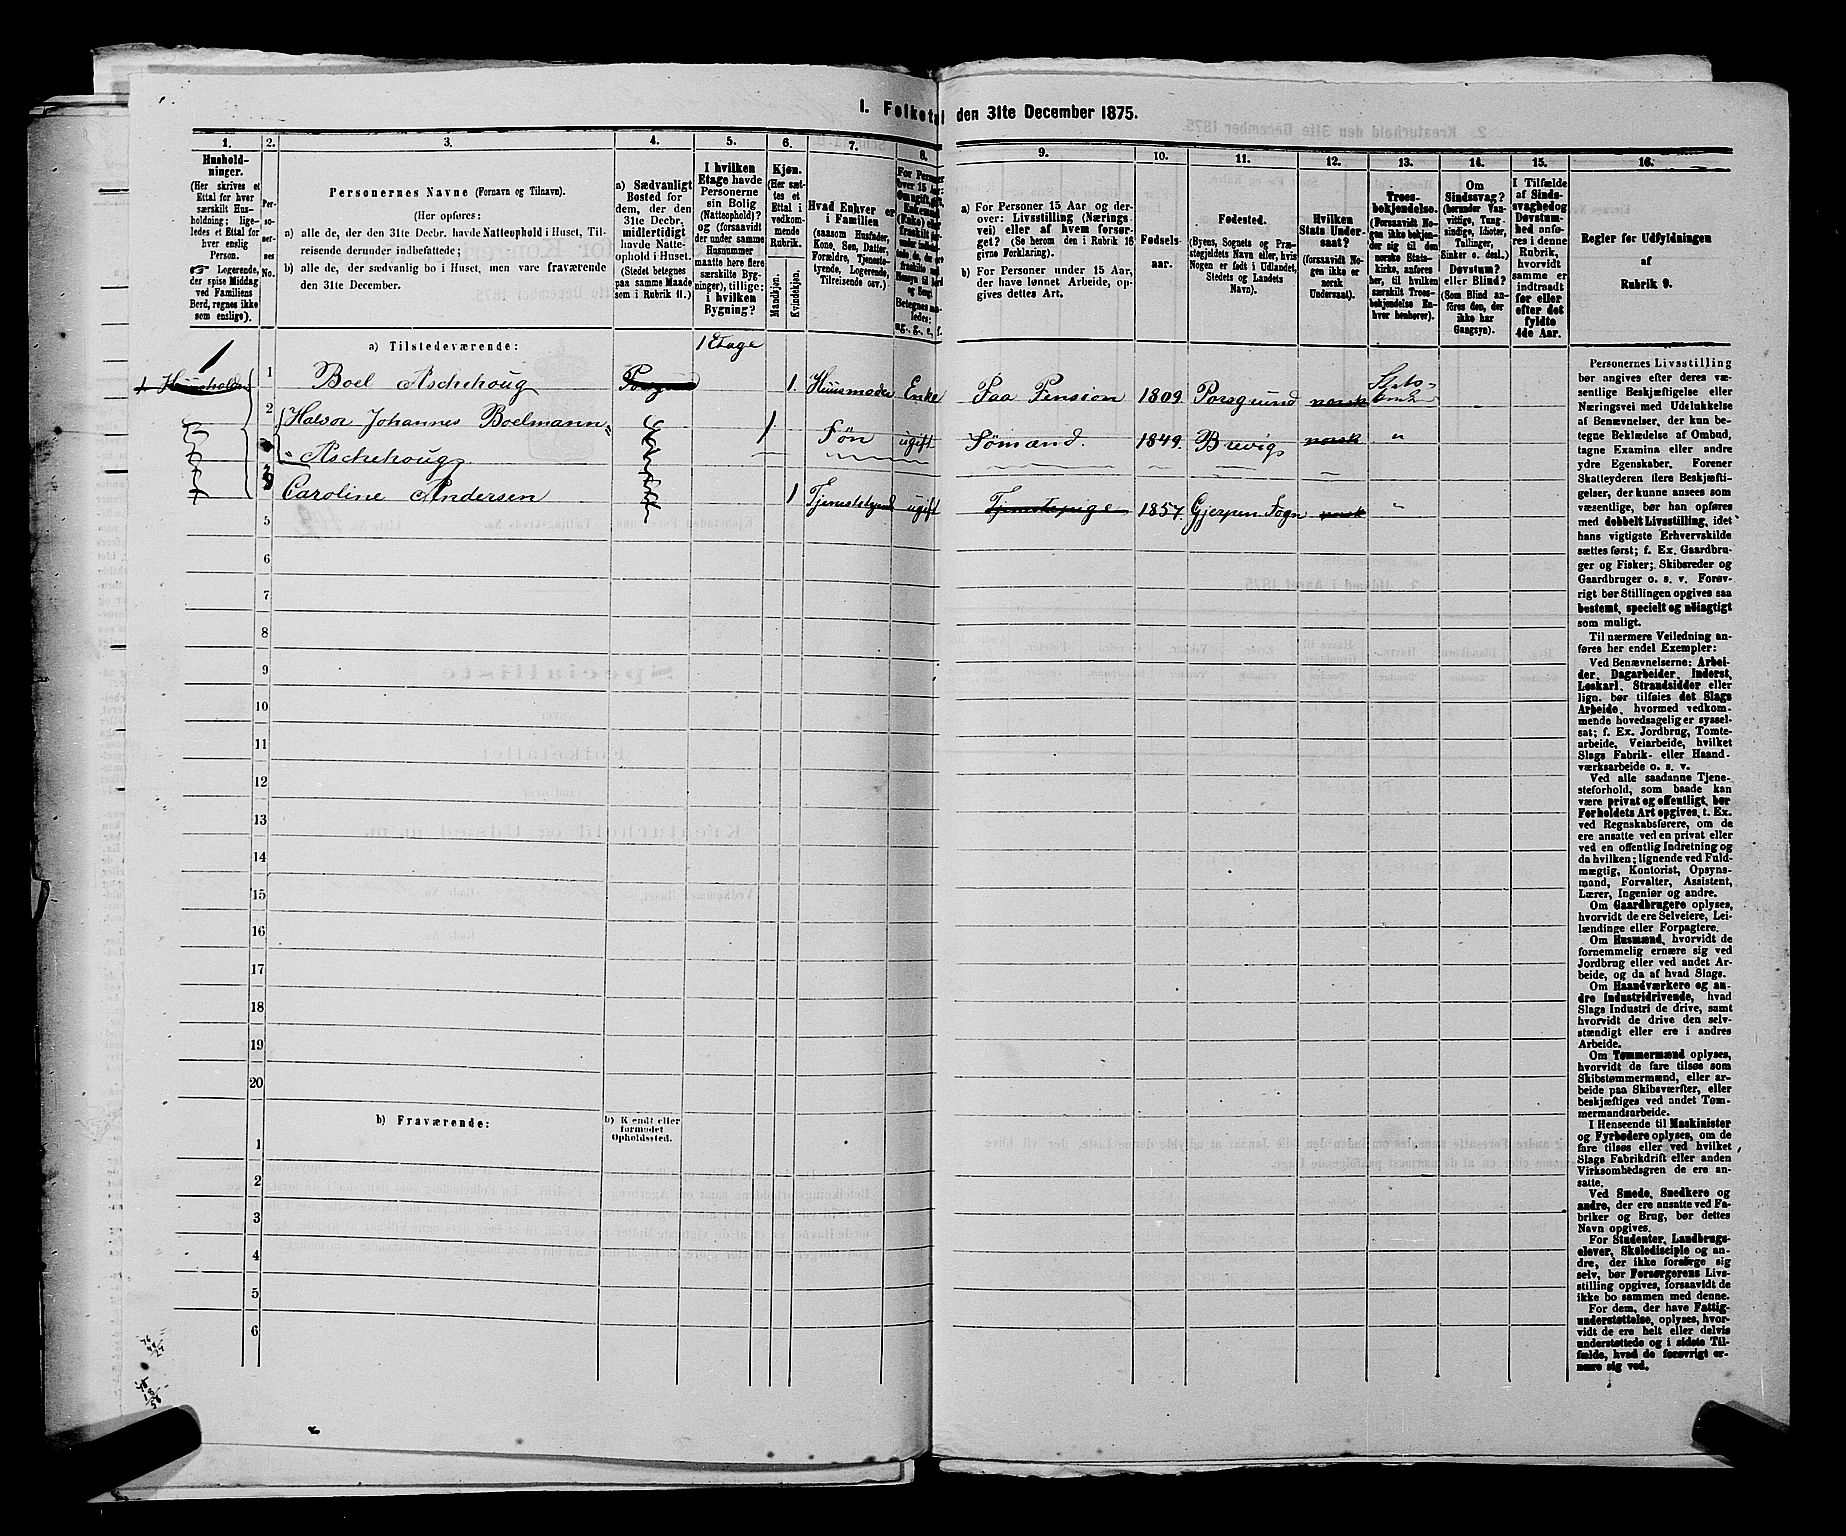 I. Folketal den 31te December 1875.
1.
2.
3.
4.
5.
6.
7.
8.
9.
10.
11.
12.
13.
14.
15.
16.
Hushold-
ninger.
(Her skrives et
Ettal for hver
særskilt Hus-
holdning; lige-
ledes et Ettal for
hver enslig
Person.
☞ Logerende,
der spise Middag
ved Familiens
Berd, regnes ikke
som enslige).
Per-
so-
ner-
nes
No.
Personernes Navne (Fornavn og Tilnavn).
(Her opføres:
a) alle de, der den 31te Decbr. havde Natteophold i Huset, Til-
reisende derunder indbefattede;
b) alle de, der sædvanlig bo i Huset, men vare fraværende
den 31te December.
a) Sædvanligt
Bosted for
dem, der den
31te Decbr.
midlertidigt
havde Natte-
ophold i Huset.
(Stedet betegnes
paa samme Maade
som i Rubrik 11.)
I hvilken
Etage havde
Personerne
sin Bolig
(Natteophold)?
og (forsaavidt
der under samme
Husnummer
maatte høre flere
særskilte Byg-
ninger), tillige:
i hvilken
Bygning?
Kjøn.
(Her sæt-
tes et
Ettal i
vedkom-
mende
Rubrik.
Mandkjøn.
Kvindekjøn.
Hvad Enhver er
i Familien
(saasom Husfader,
Kone, Søn, Datter,
Forældre, Tjeneste-
tyende, Logerende,
Tilreisende osv.)
For Personer
over 15 Aar:
ug., g., e., f.
a) For Personer 15 Aar og der-
over: Livsstilling (Nærings-
vei) eller af hvem forsør-
get? (Se herom den i Rubrik 16
givne Forklaring).
b) For Personer under 15 Aar,
der have lønnet Arbeide, op-
gives dettes Art.
Fødsels-
aar.
Fødested.
(Byens, Sognets og Præ-
stegjeldets Navn eller, hvis
Nogen er født i Udlandet,
Stedets og Landets
Navn).
Hvilken
Stats Under-
saat?
(forsaavidt No-
gen ikke er
norsk
Undersaat).
Troes-
bekjendelse.
(Forsaavidt No-
gen ikke bekjen-
der sig til den
norske Stats-
kirke, anføres
her, til hvilken
særskilt Troes-
bekjendelse En-
hver henhører).
Om
Sindssvag?
(herunder Van-
vittige, Tung-
sindige, Idioter,
Tullinger,
Sinker o. desl.)
Døvstum?
eller Blind?
(Som Blind an-
føres den, der
ikke har
Gangsyn).
I Tilfælde
af Sinds-
svaghed og
Døvstum-
hed anfø-
res i denne
Rubrik,
hvorvidt
samme er
indtraadt
før eller
efter det
fyldte
4de Aar.
Regler for Udfyldningen
af
Rubrik 9.
a) Tilstedeværende:
1 Etage
1
1 Huusholdn
1 Boel Aschehoug Porsgrund 1. Huusmoder Enke Paa Pension 1809. Porsgrund norsk Stats-
2 Halvor Johannes Boelmann= 1 Søn ugift Sømand. 1849. Brevig norsk "
" Aschehoug
3 Caroline Andersen 1 Tjenestetyend ugift Tjenestepige 1857. Gjerpen Sogn norsk "
5
6
7
8
9
10
11
12
13
14
15
16
17
18
19
20
b) Fraværende:
b) Kjendt eller
formodet
Opholdssted.
1
2
3
4
5
6
Personernes Livsstilling
bør angives efter deres væ-
sentlige Beskjæftigelse eller
Næringsvei med Udelukkelse
af Benævnelser, der kun be-
tegne Beklædelse af Ombud,
tagne Examina eller andre
ydre Egenskaber. Forener
Skatteyderen flere Beskjæfti-
gelser, der kunne ansees som
væsentlige, bør han opgives
med dobbelt Livsstilling, idet
hans vigtigste Erhvervskilde
sættes først; f. Ex. Gaardbru-
ger og Fisker; Skibsreder og
Gaardbruger o. s. v. Forøv-
rigt bør Stillingen opgives saa
bestemt, specielt og nøiagtigt
som muligt.
Til nærmere Veiledning an-
føres her endel Exempler:
Ved Benævnelserne: Arbei-
der, Dagarbeider, Inderst,
Løskarl, Strandsidder eller
lign. bør tilføies det Slags
Arbeide, hvormed vedkom-
mende hovedsagelig er syssel-
sat; f. Ex. Jordbrug, Tomte-
arbeide, Veiarbeide, hvilket
Slags Fabrik- eller Haand-
værksarbeide o. s. v.
Ved alle saadanne Tjene-
steforhold, som baade kan
være privat og offentligt, bør
Forholdets Art opgives, t. Ex.
ved Regnskabsførere, om de
ere ansatte ved en privat eller
ved en offentlig Indretning og
da hvilken; lignende ved Fuld-
mægtig, Kontorist, Opsyns-
mand, Forvalter, Assistent,
Lærer, Ingeniør og andre.
Om Gaardbrugere oplyses,
hvorvidt de ere Selveiere, Lei-
lændinge eller Forpagtere.
Om Husmænd, hvorvidt de
fornemmelig ernære sig ved
Jordbrug eller ved andet Ar-
beide, og da af hvad Slags.
Om Haandværkere og an-
dre Industridrivende, hvad
Slags Industri de drive, samt
hvorvidt de drive den selv-
stændigt eller ere i andres
Arbeide.
Om Tømmermænd oplyses,
hvorvidt de fare tilsøs som
Skibstømmermænd, eller ar-
beide paa Skibsværfter, eller
beskjæftiges ved andet Tøm-
mermandsarbeide.
I Henseende til Maskinister
og Fyrbødere oplyses, om de
fare tilsøs eller ved hvilket
Slags Fabrikdrift eller anden
Virksomhedsgren de ere an-
satte.
Ved Smede, Snedkere og
andre, der ere ansatte ved Fa-
briker og Brug, bør dettes
Navn opgives.
For Studenter, Landbrugs-
elever, Skoledisciple og an-
dre, der ikke forsørge sig
selv, bør Forsørgerens Livs-
stilling opgives, forsaavidt de
ikke bo sammen med denne.
For dem, der have Fattig-
understøttelse, oplyses, hvor-
vidt de ere helt eller delvis
understøttede og i sidste Til-
fælde, hvad de forøvrigt er-
nære sig ved.